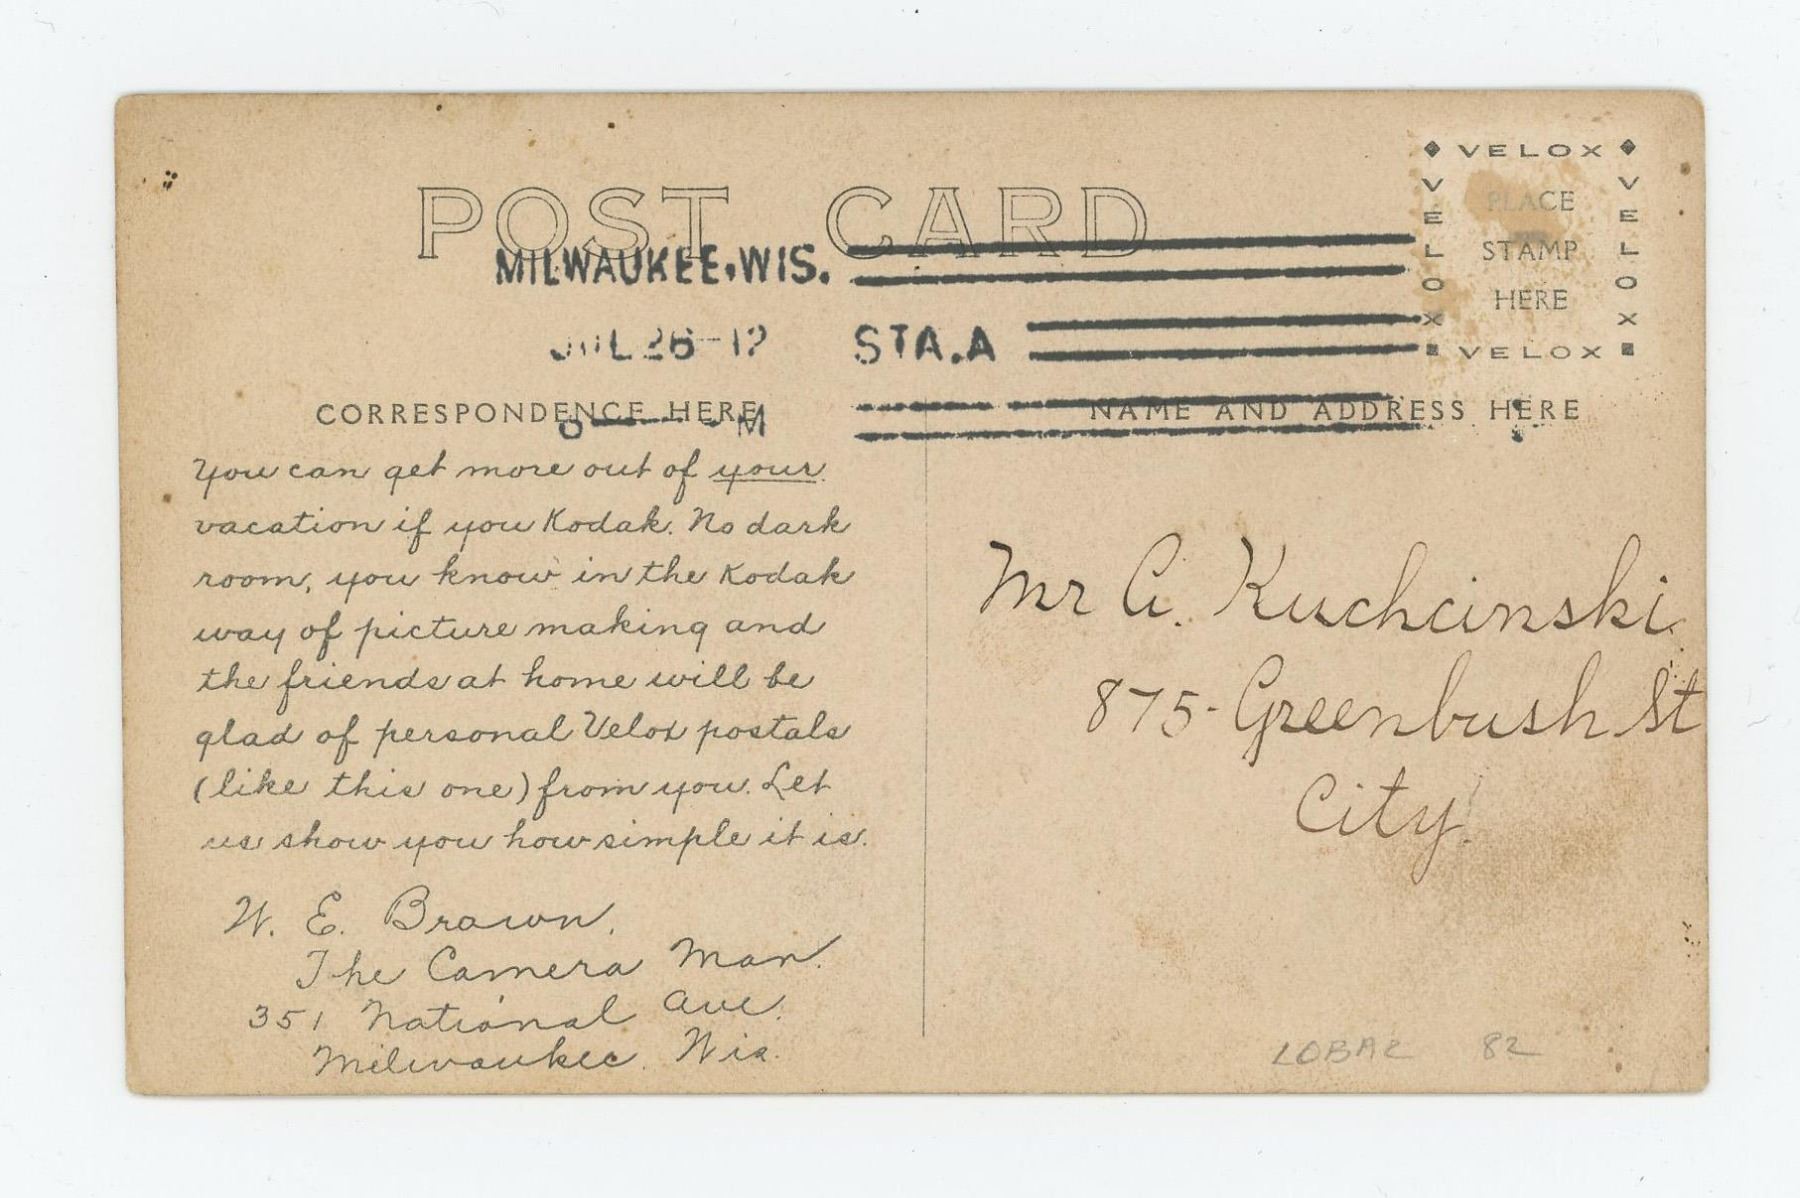 POST CARD
VELOX
VELOX
VELOX
VELOX
PLACE
STAMP
HERE
MILWAUKEE, WIS.
JUL 26 - 12
STA. A
M
CORRESPONDENCE HERE
NAME AND ADDRESS HERE
You can get more out of your
vacation if you Kodak. No dark
room, you know in the Kodak
way of picture making and
the friends at home will be
glad of personal Velox postals
(like this one) from you. Let
us show you how simple it is.
W. E. Brown.
The Camera Man.
351 National Ave.
Milwaukee. Wis.
Mr A. Kuchcinski
875- Greenbush St
City.
82